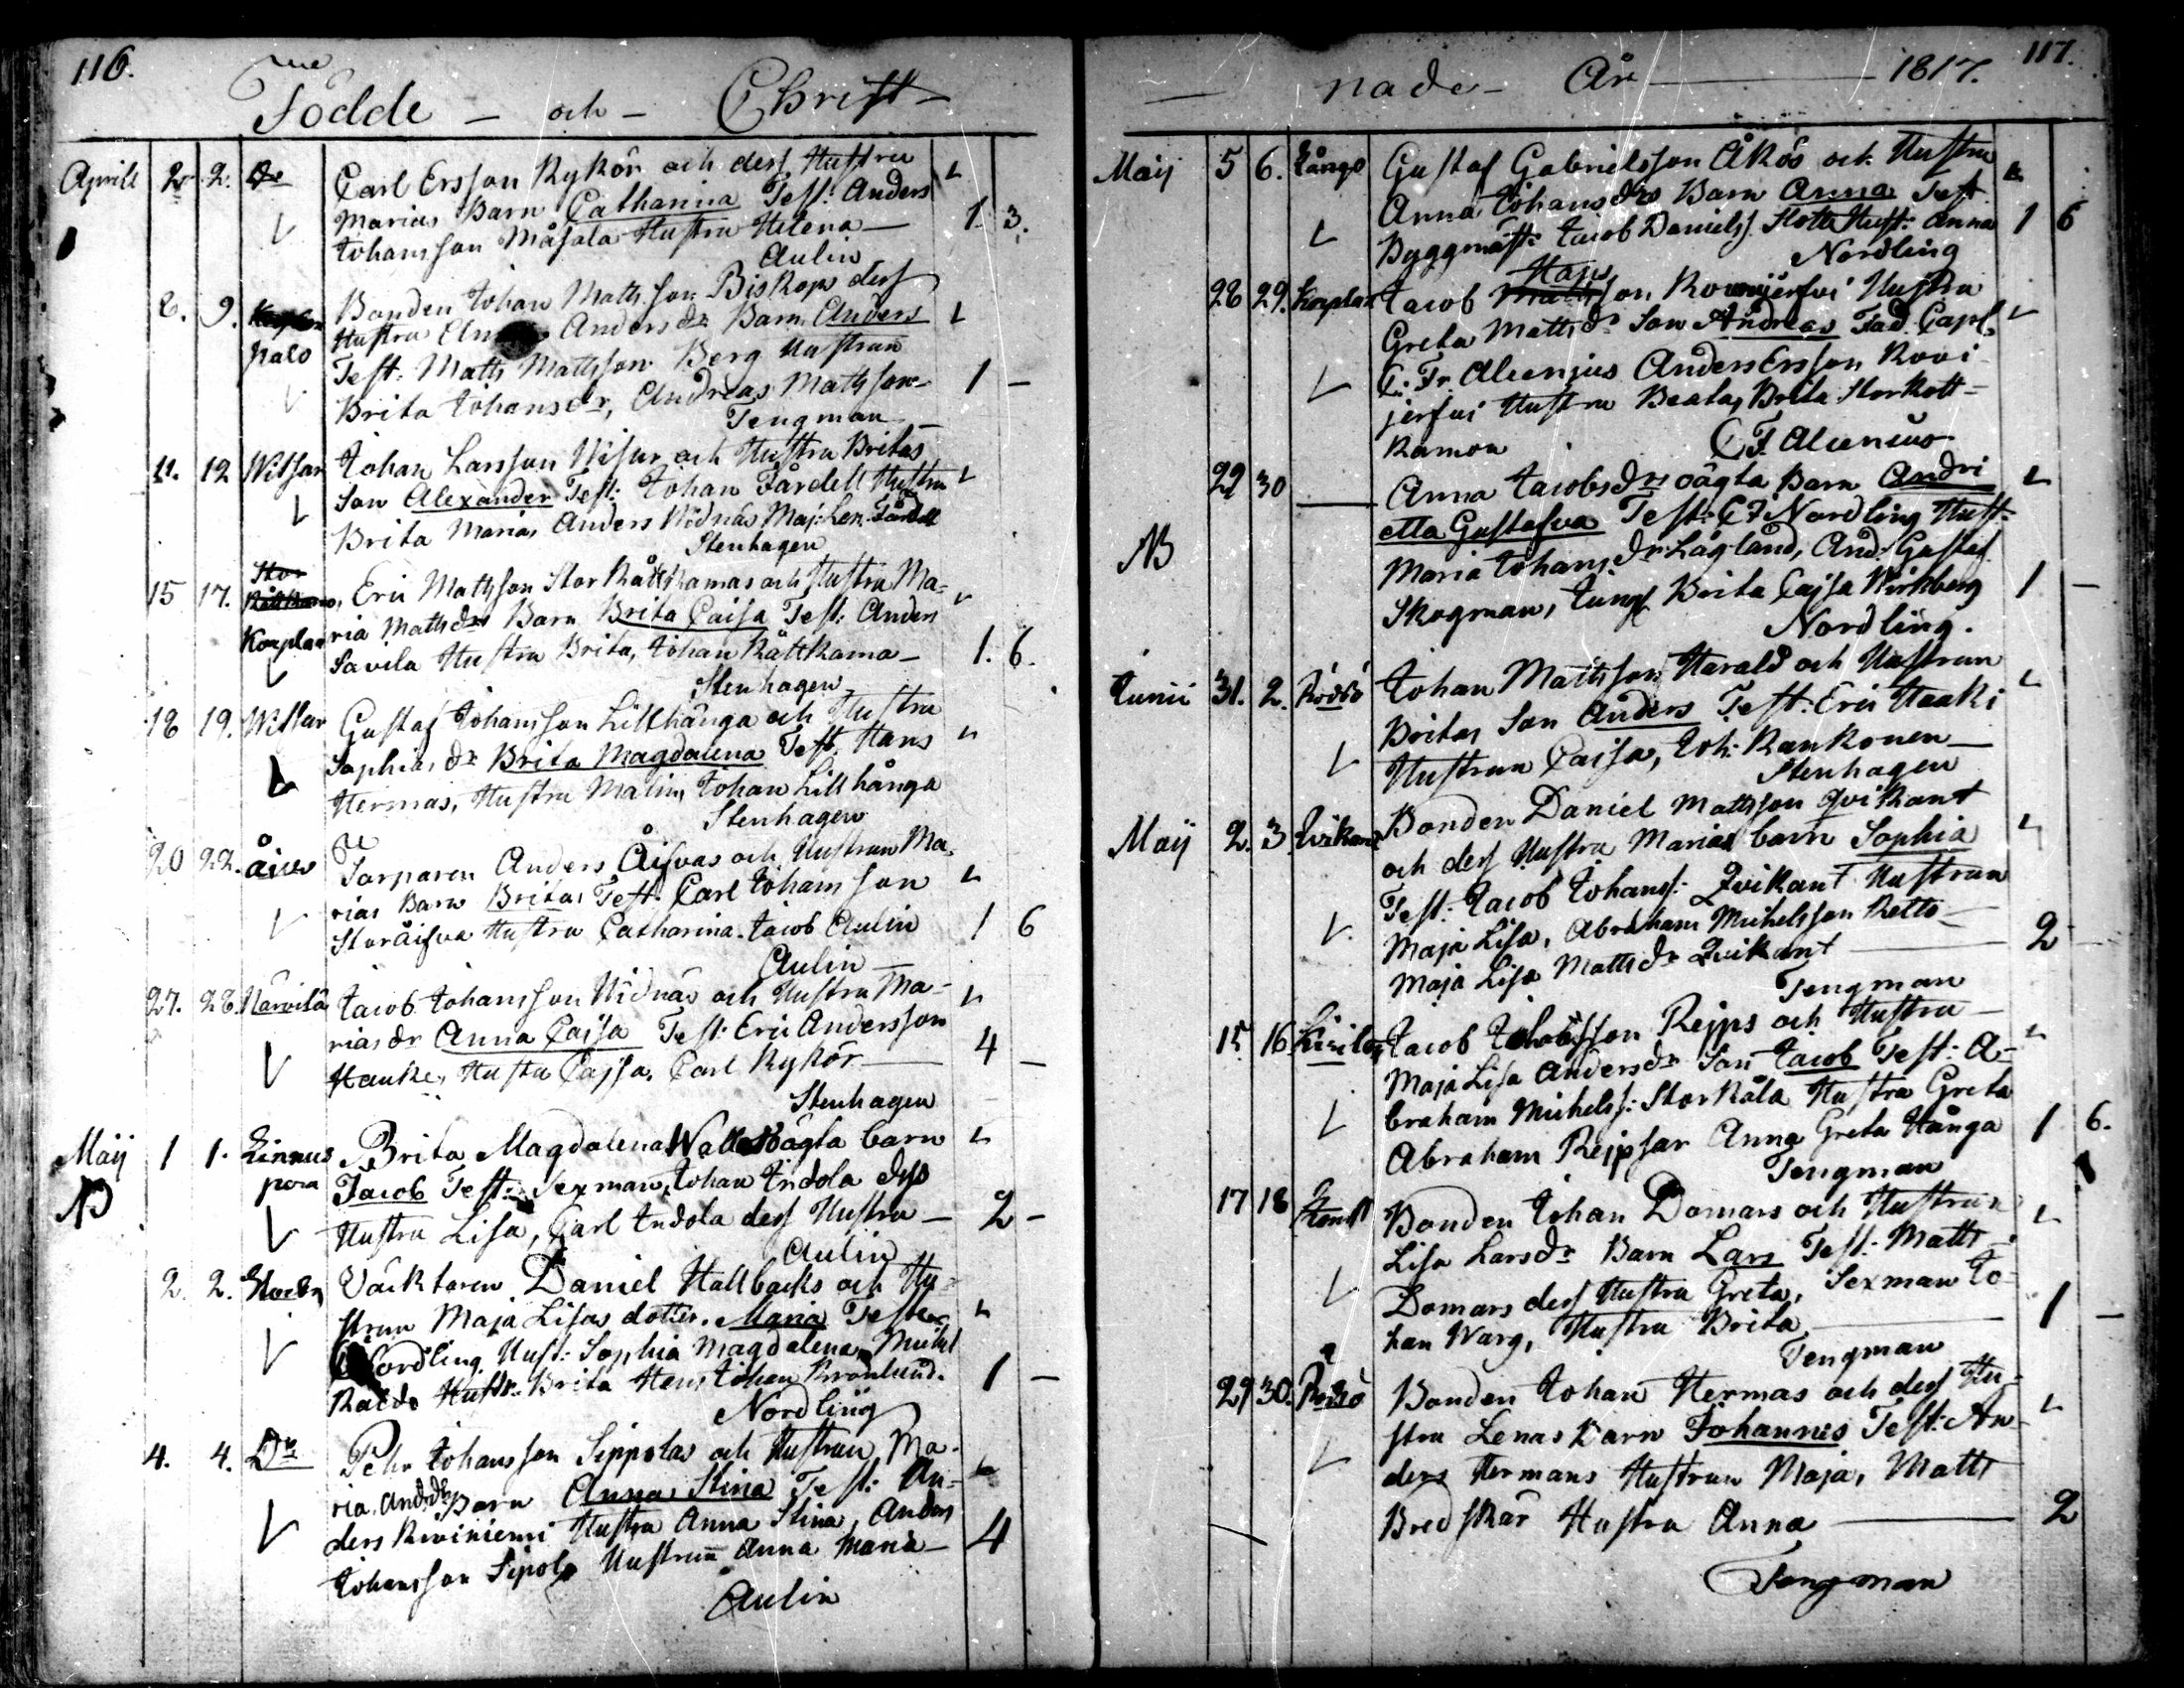 116.
Födde - och - Christ-
Aprill 2. 2. Do Carl Ersson Rykör och dess Hustru
Marias Barn Catharina Test: Anders
Johansson Måsala Hustru Helena — 1. 3.
Aulin
8. 9. Bonden Johan Matts son Biskops dess
Hustru Anders dr Barn Anders
palo Test: Matts Mattsson Berg Hustrun
Brita Johans dr, Andreas Mattsson 1 —
Tengman
11. 12 Witsar Johan Larsson Wisur och Hustru Britas
Son Alexander Test: Johan Fårdell Hustru
Brita Maria, Anders Nidnäs Maj: Len: Fårdell
Stenhagen
15 17. Eric Mattsson Stor Råttkamas och Hustru Ma-
Korplax ria Matts drs Barn Brita Caisa Test: Anders
Savila Hustru Brita, Johan Råttkama — 1. 6.
Stenhagen
18 19. Witsar Gustaf Johansson Lillhånga och Hustru
Sophias dr Brita Magdalena Test. Hans
Hermas, Hustru Malin, Johan Lillhånga
Stenhagen
20 22. Torparen Anders Åisvas och Hustrun Ma-
rias Barn Britas Test. Carl Johansson
Storåisva Hustru Catharina. Jacob Aulin 1 6
Aulin —
27. 28. Närvilä Jacob Johansson Nidnäs och Hustru Ma-
rias dr Anna Caisa Test: Eric Andersson
Hauke, Hustru Cajsa, Carl Rykör — 4 —
Stenhagen
Maij 1 1. Linnus Brita Magdalena oägta barn
NB pera Jacob Test: Sexman, Johan Indola dess
Hustru Lisa, Carl Indola dess Hustru — 2 -
Aulin
2. 2. Väcktaren Daniel Hallbacks och Hu-
strun Maja Lisas dotter. Maria Test:
Nordling Hust: Sophia Magdalena, Mickel
Hustr. Brita Johan Kronlund. 1 —
Nordling
4. 4. Do Pehr Johansson Sippolas och Hustrun Ma-
ria And:dr Barn Anna Stina Test: An-
ders Hustru Anna Stina, Anders
Johansson Sipola Hustrun Anna Maria — 4
Aulin
117.
— nade - År — 1817.
Maij 5 6. Långö Gustaf Gabrielsson Åkös och Hustru
Anna Johans drs Barn Anna Test
Byggmäst: Jacob Daniels. Slotte Hust: Anna 1 6
Nordling
28 29. Korplax Jacob Hans son Hustru
Greta Matts dr Son Andreas Fad. Capl.
C: Fr. Alcenius Anders Ersson Rovi-
jerfvi Hustru Beata, Brita Storkott-
Ramon C F. Alcenius
29 30 — Anna Jacobs drs oägta Barn Andri
etta Gustafva Test: C F Nordling Hust:
NB Maria Johans dr Lågland, And: Gustaf
Skogman, Jungf Brita Cajsa Wirkberg 1 —
Nordling.
Junii 31. 2. Rödsö Johan Mattsson Harald och Hustrun
Britas Son Anders Test. Eric Haaki
Hustrun Caisa, Joh: Kankonen —
Stenhagen
Maij 2. 3 Qvikant Bonden Daniel Mattsson Qvikant
och dess Hustru Marias barn Sophia
Test: Jacob Johans: Qvikant Hustrun
Maja Lisa, Abraham Michelsson
Maja Lisa Matts dr Qvikant — 2
Tengman
15 16 Jacob Jacobsson Rejps och Hustru —
Maja Lisa Anders dr Son Jacob Test: A-
braham Michels: Hustru Greta
Abraham Rejpsar Anna Greta Hånga 1 6.
Tengman
17 18 Bonden Johan Domars och Hustrun
Lisa Lars dr Barn Lars Test: Matts
Domars dess Hustru Greta, Sexman Jo-
han Warg, Hustru Brita — 1 —
Tengman
29 30. Rödsö Bonden Johan Hermas och dess Hu-
stru Lenas Barn Johannes Test: An-
ders Hermans Hustrun Maja, Matts
Bredskär Hustru Anna — 2
Tengman